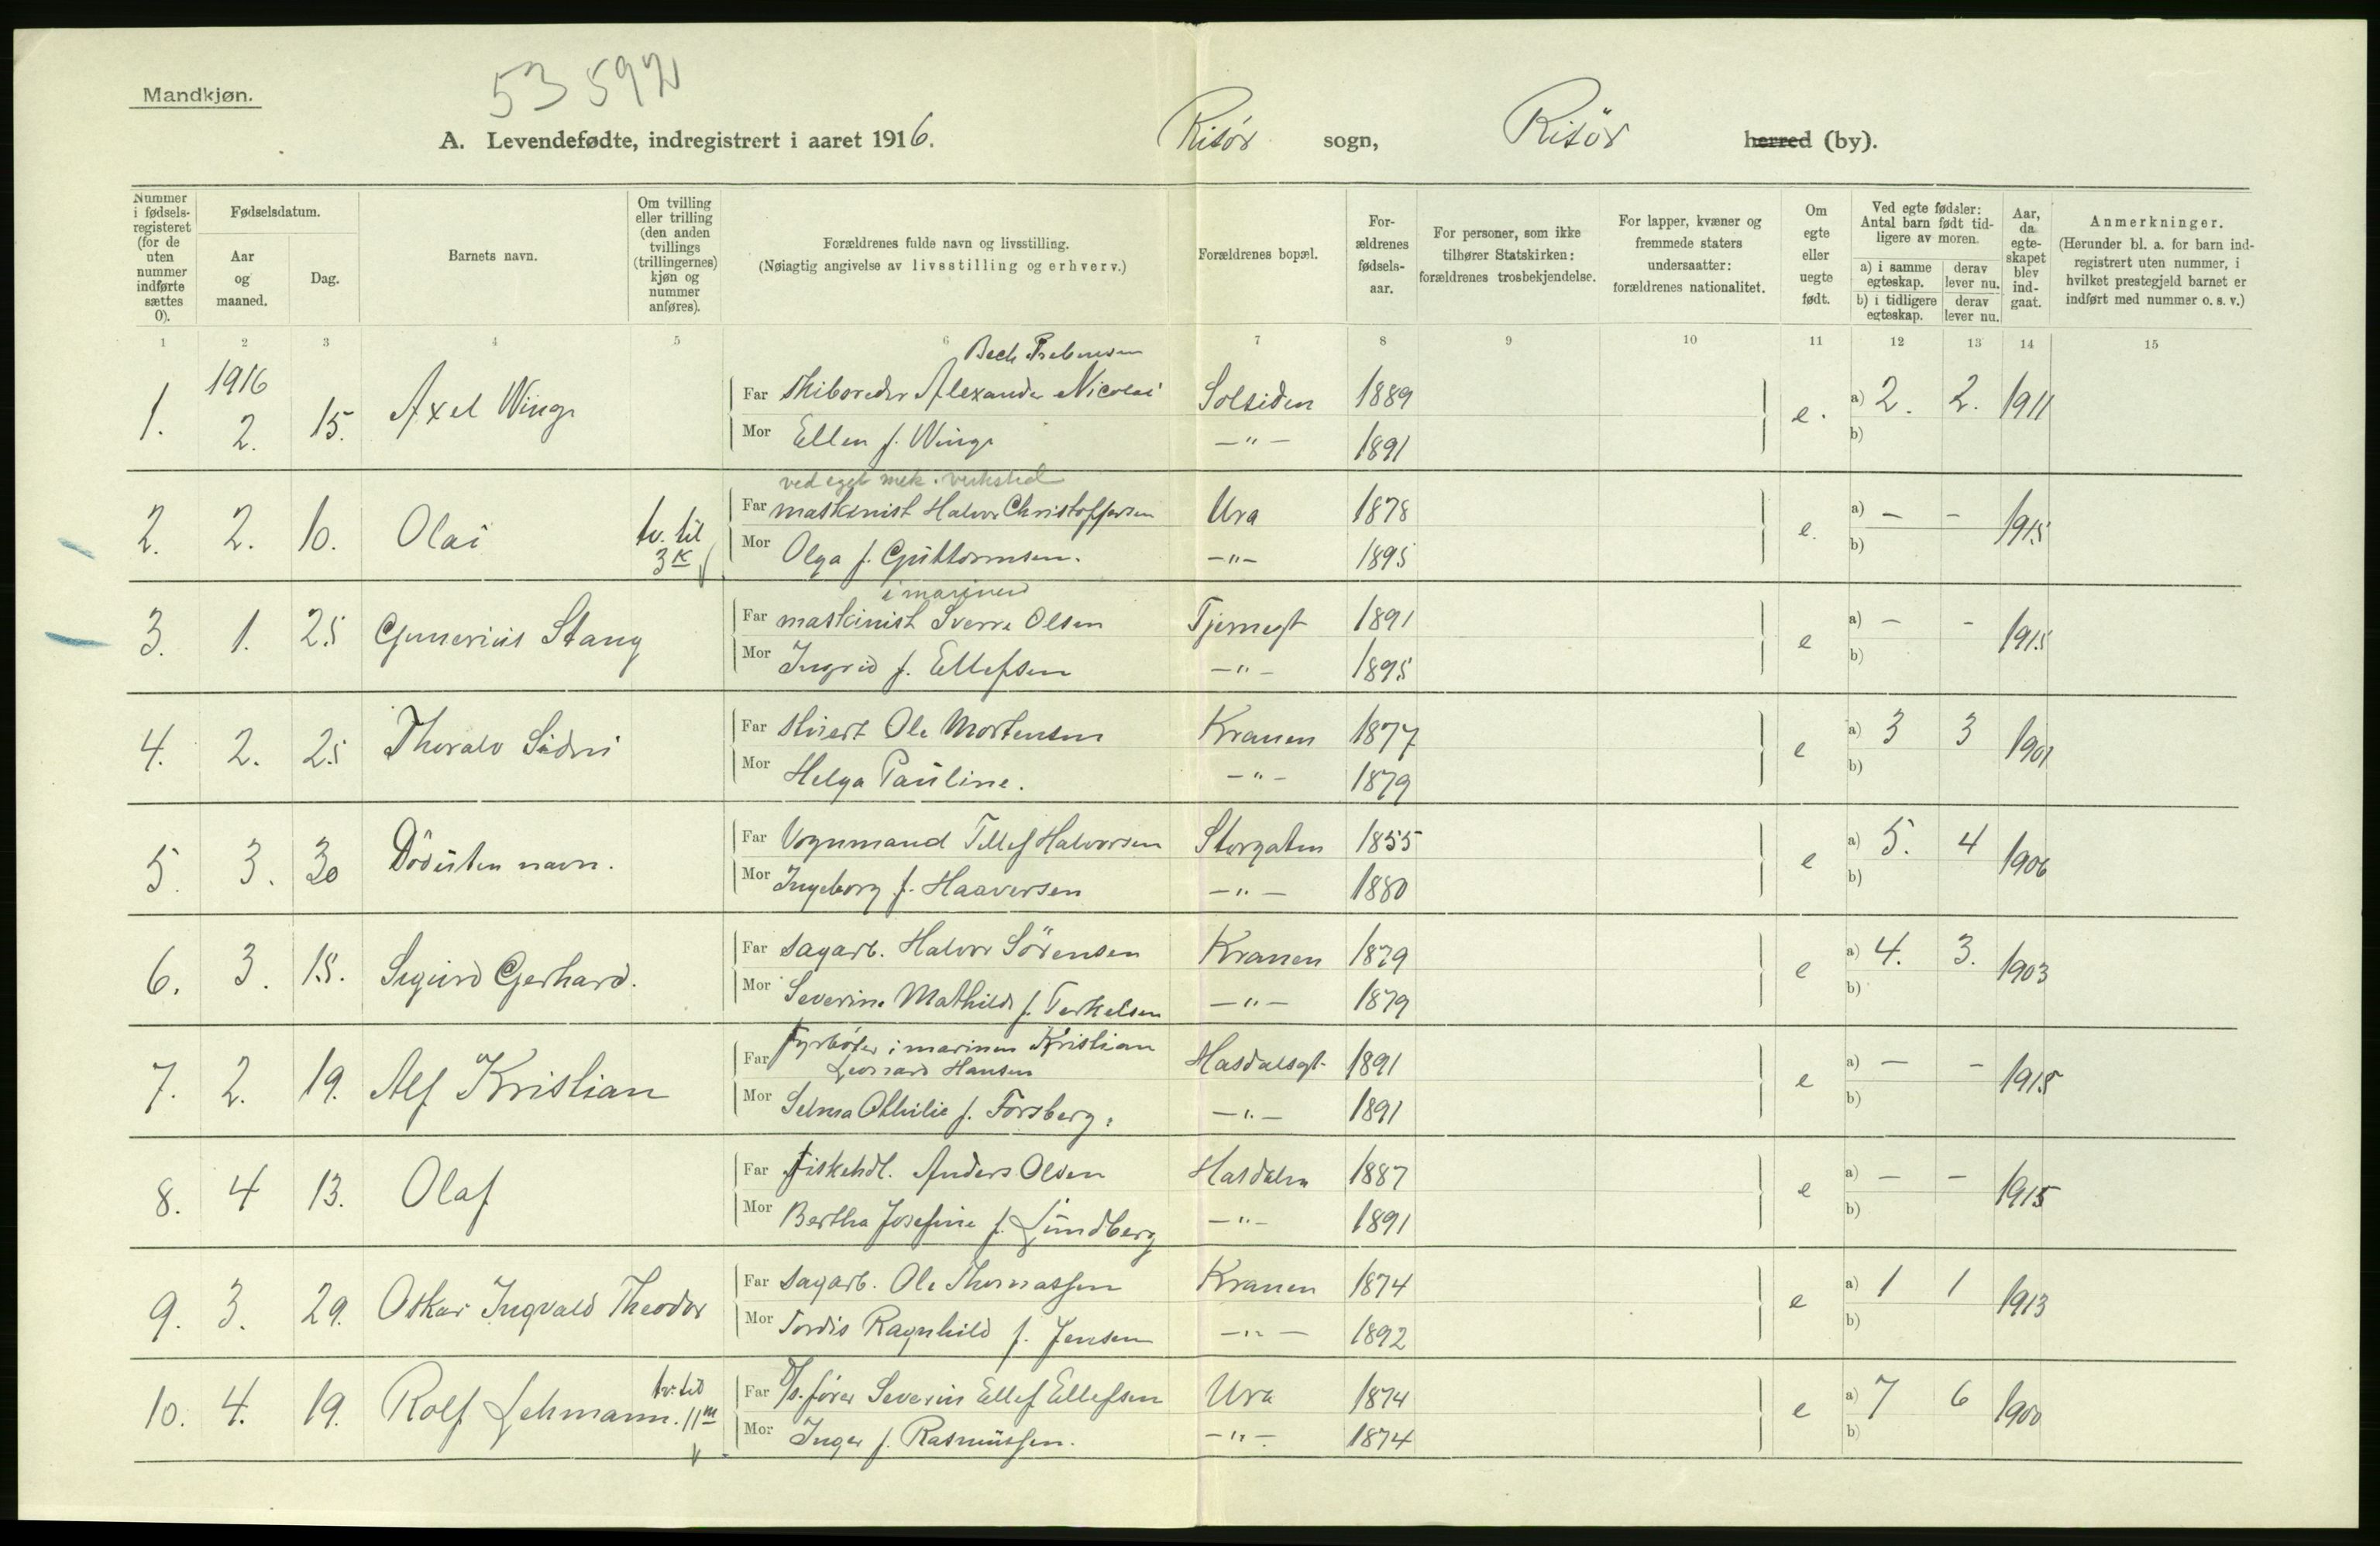 Mandkjøn.
53 592
A. Levendefødte, indregistrert i aaret 1916. Risør sogn, Risør herred (by).
Nummer i fødselsregisteret (for de uten nummer indførte sættes 0).
Fødselsdatum.
Aar og maaned.
Dag.
Barnets navn.
Om tvilling eller trilling (den anden tvillings (trillingernes) kjøn og nummer anføres).
Forældrenes fulde navn og livsstilling.
(Nøiagtig angivelse av livsstilling og erhverv.)
Forældrenes bopæl.
Forældrenes fødselsaar.
For personer, som ikke tilhører Statskirken: forældrenes trosbekjendelse.
For lapper, kvæner og fremmede staters undersaatter: forældrenes nationalitet.
Om egte eller uegte født.
Ved egte fødsler: Antal barn født tidligere av moren.
a) i samme egteskap. derav lever nu.
b) i tidligere egteskap. derav lever nu.
Aar, da egteskapet blev indgaat.
Anmerkninger.
(Herunder bl. a. for barn indregistrert uten nummer, i hvilket prestegjeld barnet er indført med nummer o. s. v.)
1 2 3 4 5 6 7 8 9 10 11 12 13 14 15
1916
Bech Prebensen
1. 2. 15. Axel Winge Far Skibsreder Alexander Nicolai Solsiden 1889 e. a) 2. 2. 1911
Mor Ellen f. Winge —"— 1891 b)
ved eget mek. verksted
2. 2. 10. Olai tv. til 3 K Far maskinist Halvor Christoffersen Ura 1878 e. a) — — 1915
Mor Olga f. Guttormsen. —"— 1895 b)
i marinen
3. 1. 25 Gunerius Stang Far maskinist Sverre Olsen Tjernegt 1891 e a) — — 1915
Mor Ingrid f. Ellefsen —"— 1895 b)
4. 2. 25 Thoralv Sidni Far Stuert Ole Mortensen Kranen 1877 e a) 3 3 1901
Mor Helga Pauline. —"— 1879 b)
5. 3. 30 Död uten navn. Far Vognmand Tellef Halvorsen Storgaten 1855 e a) 5. 4 1906
Mor Ingeborg f. Haaversen —"— 1880 b)
6. 3. 15. Sigurd Gerhard. Far sagarb. Halvor Sörensen Kranen 1879 e a) 4. 3. 1903
Mor Severine Mathilde f. Terkelsen —"— 1879 b)
7. 2. 19. Alf Kristian Far Fyrbøter i marinen Kristian
Leonard Hansen Hasdalsgt. 1891 e a) — — 1915
Mor Selma Othilie f. Forsberg. —"— 1891 b)
8. 4 13. Olaf Far Fiskehdl. Anders Olsen Hasdalen 1887 e a) — — 1915
Mor Bertha Josefine f. Lundberg —"— 1891 b)
9. 3. 29. Oskar Ingvald Theodor Far sagarb. Ole Thomassen Kranen 1874 e a) 1 1 1913
Mor Tordis Ragnhild f. Jensen —"— 1892 b)
10. 4. 19. Rolf Lehmann. tv. til 11 m Far S/s. fører Severin Ellef Ellefsen Ura 1874 e a) 7 6 1900
Mor Inger f. Rasmussen. —"— 1874 b)